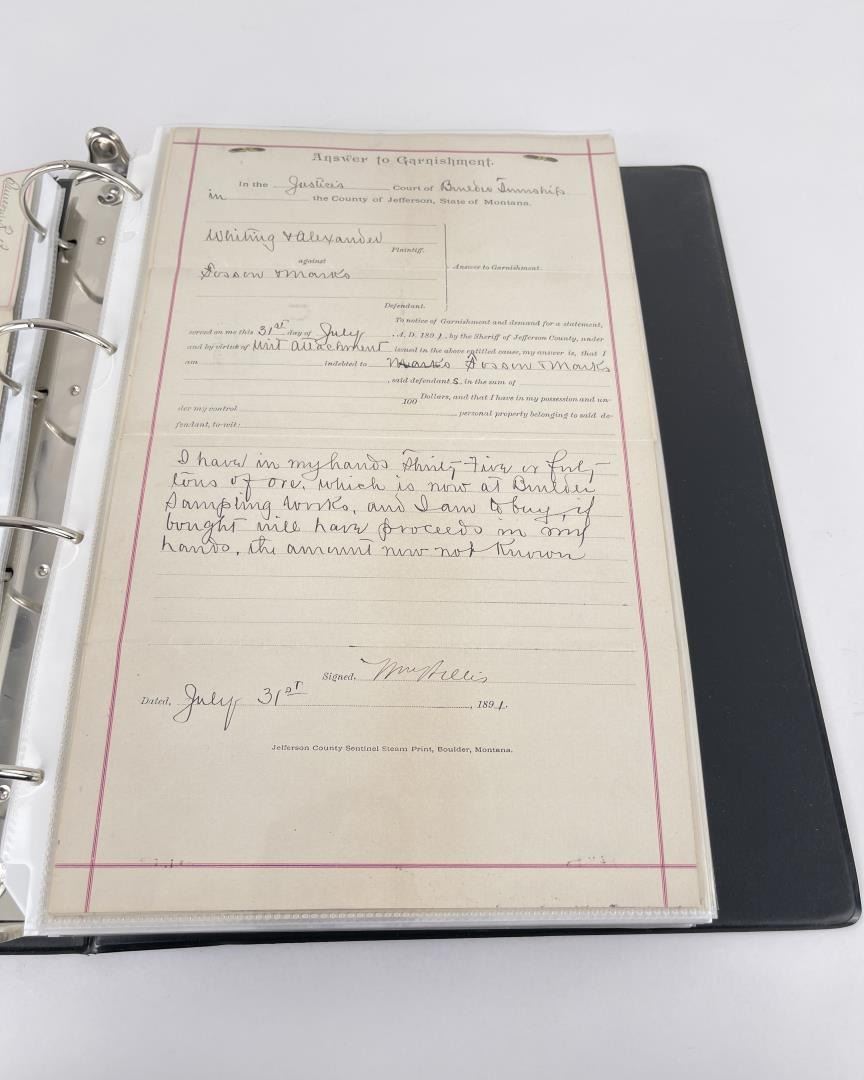 Answer to Garnishment.
In the Justices Court of Boulder Township
in the County of Jefferson, State of Montana.
Whiting & Alexander
Plaintiff.
against
Answer to Garnishment.
& Marks
Defendant.
To notice of Garnishment and demand for a statement,
served on me this 31st day of July , A. D. 1891, by the Sheriff of Jefferson County, under
and by virtue of Writ attachment issued in the above entitled cause, my answer is, that I
am indebted to Marks & Marks
, said defendant s, in the sum of
100 Dollars, and that I have in my possession and un-
der my control personal property belonging to said de-
fendant, to-wit:
I have in my hands Thirty Five or forty
tons of ore, which is now at Boulder
Sampling Works, and I am to buy, if
bought will have proceeds in my
hands, the amount now not Known
Signed, Wm
Dated, July 31st , 1891.
Jefferson County Sentinel Steam Print, Boulder, Montana.